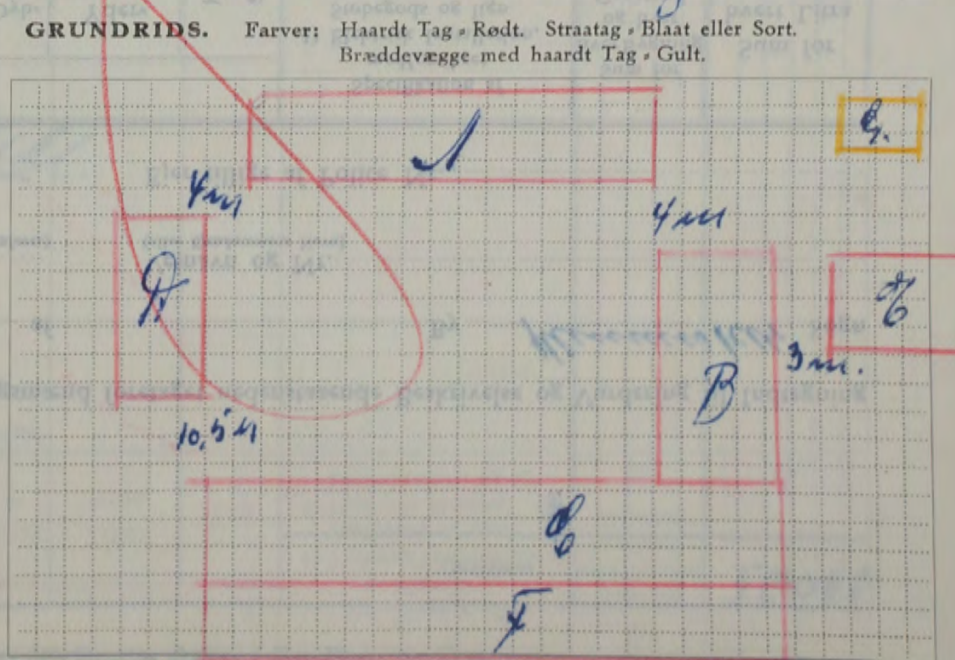 GRUNDRIDS. Farver: Haardt Tag = Rødt. Straatag = Blaat eller Sort.
Bræddevægge med haardt Tag = Gult.
A
G.
4 m
4 m
D
E
3 m.
B
10,5 m
C
F